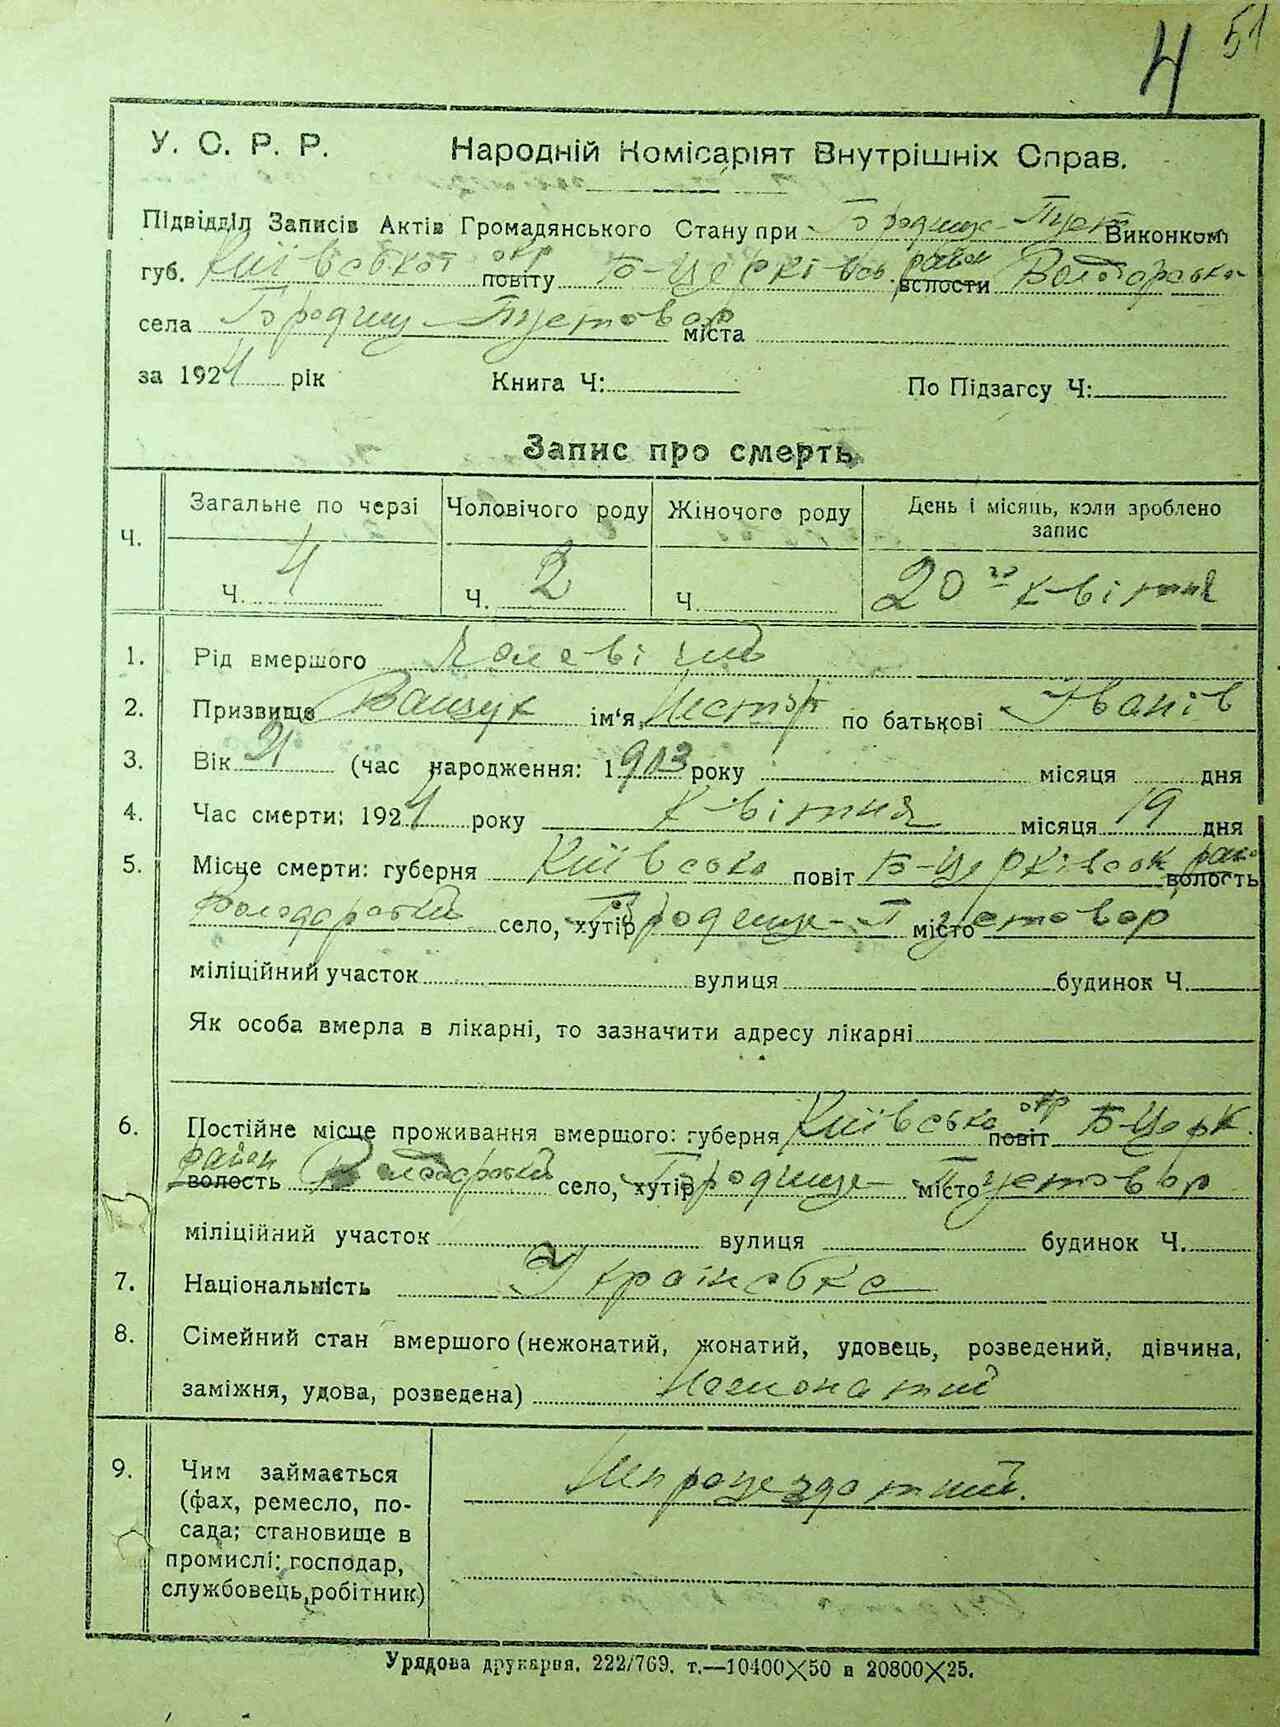 51
4
У. С. Р. Р. Народній Комісаріят Внутрішніх Справ.
Підвідділ Записів Актів Громадянського Стану при Городище-Пуст Виконком
губ. Київської окр повіту Б-Церківськ район волости Володарсько
села Городище-Пустовар міста
за 1924 рік Книга Ч: По Підзагсу Ч:
Запис про смерть
Ч. Загальне по черзі Чоловічого роду Жіночого роду День і місяць, коли зроблено запис
Ч. 4 Ч. 2 Ч. 20го квітня
1. Рід вмершого чоловічий
2. Призвище Ващук ім'я Нестор по батькові Іванів
3. Вік 21 (час народження: 1903 року місяця дня
4. Час смерти: 1924 року квітня місяця 19 дня
5. Місце смерти: губерня Київсько повіт Б-Церківськ район волость
Володарський село, хутір Городище-Пустовар місто
міліційний участок вулиця будинок Ч.
Як особа вмерла в лікарні, то зазначити адресу лікарні
6. Постійне місце проживання вмершого: губерня Київсько окр повіт Б-Церк.
район волость Володарський село, хутір Городище-Пустовар місто
міліційний участок вулиця будинок Ч.
7. Національність Українська
8. Сімейний стан вмершого (нежонатий, жонатий, удовець, розведений, дівчина,
заміжня, удова, розведена) Нежонатий
9. Чим займається
(фах, ремесло, по-
сада; становище в
промислі: господар,
службовець, робітник)
Урядова друкарня. 222/769. т.—10400X50 и 20800X25.